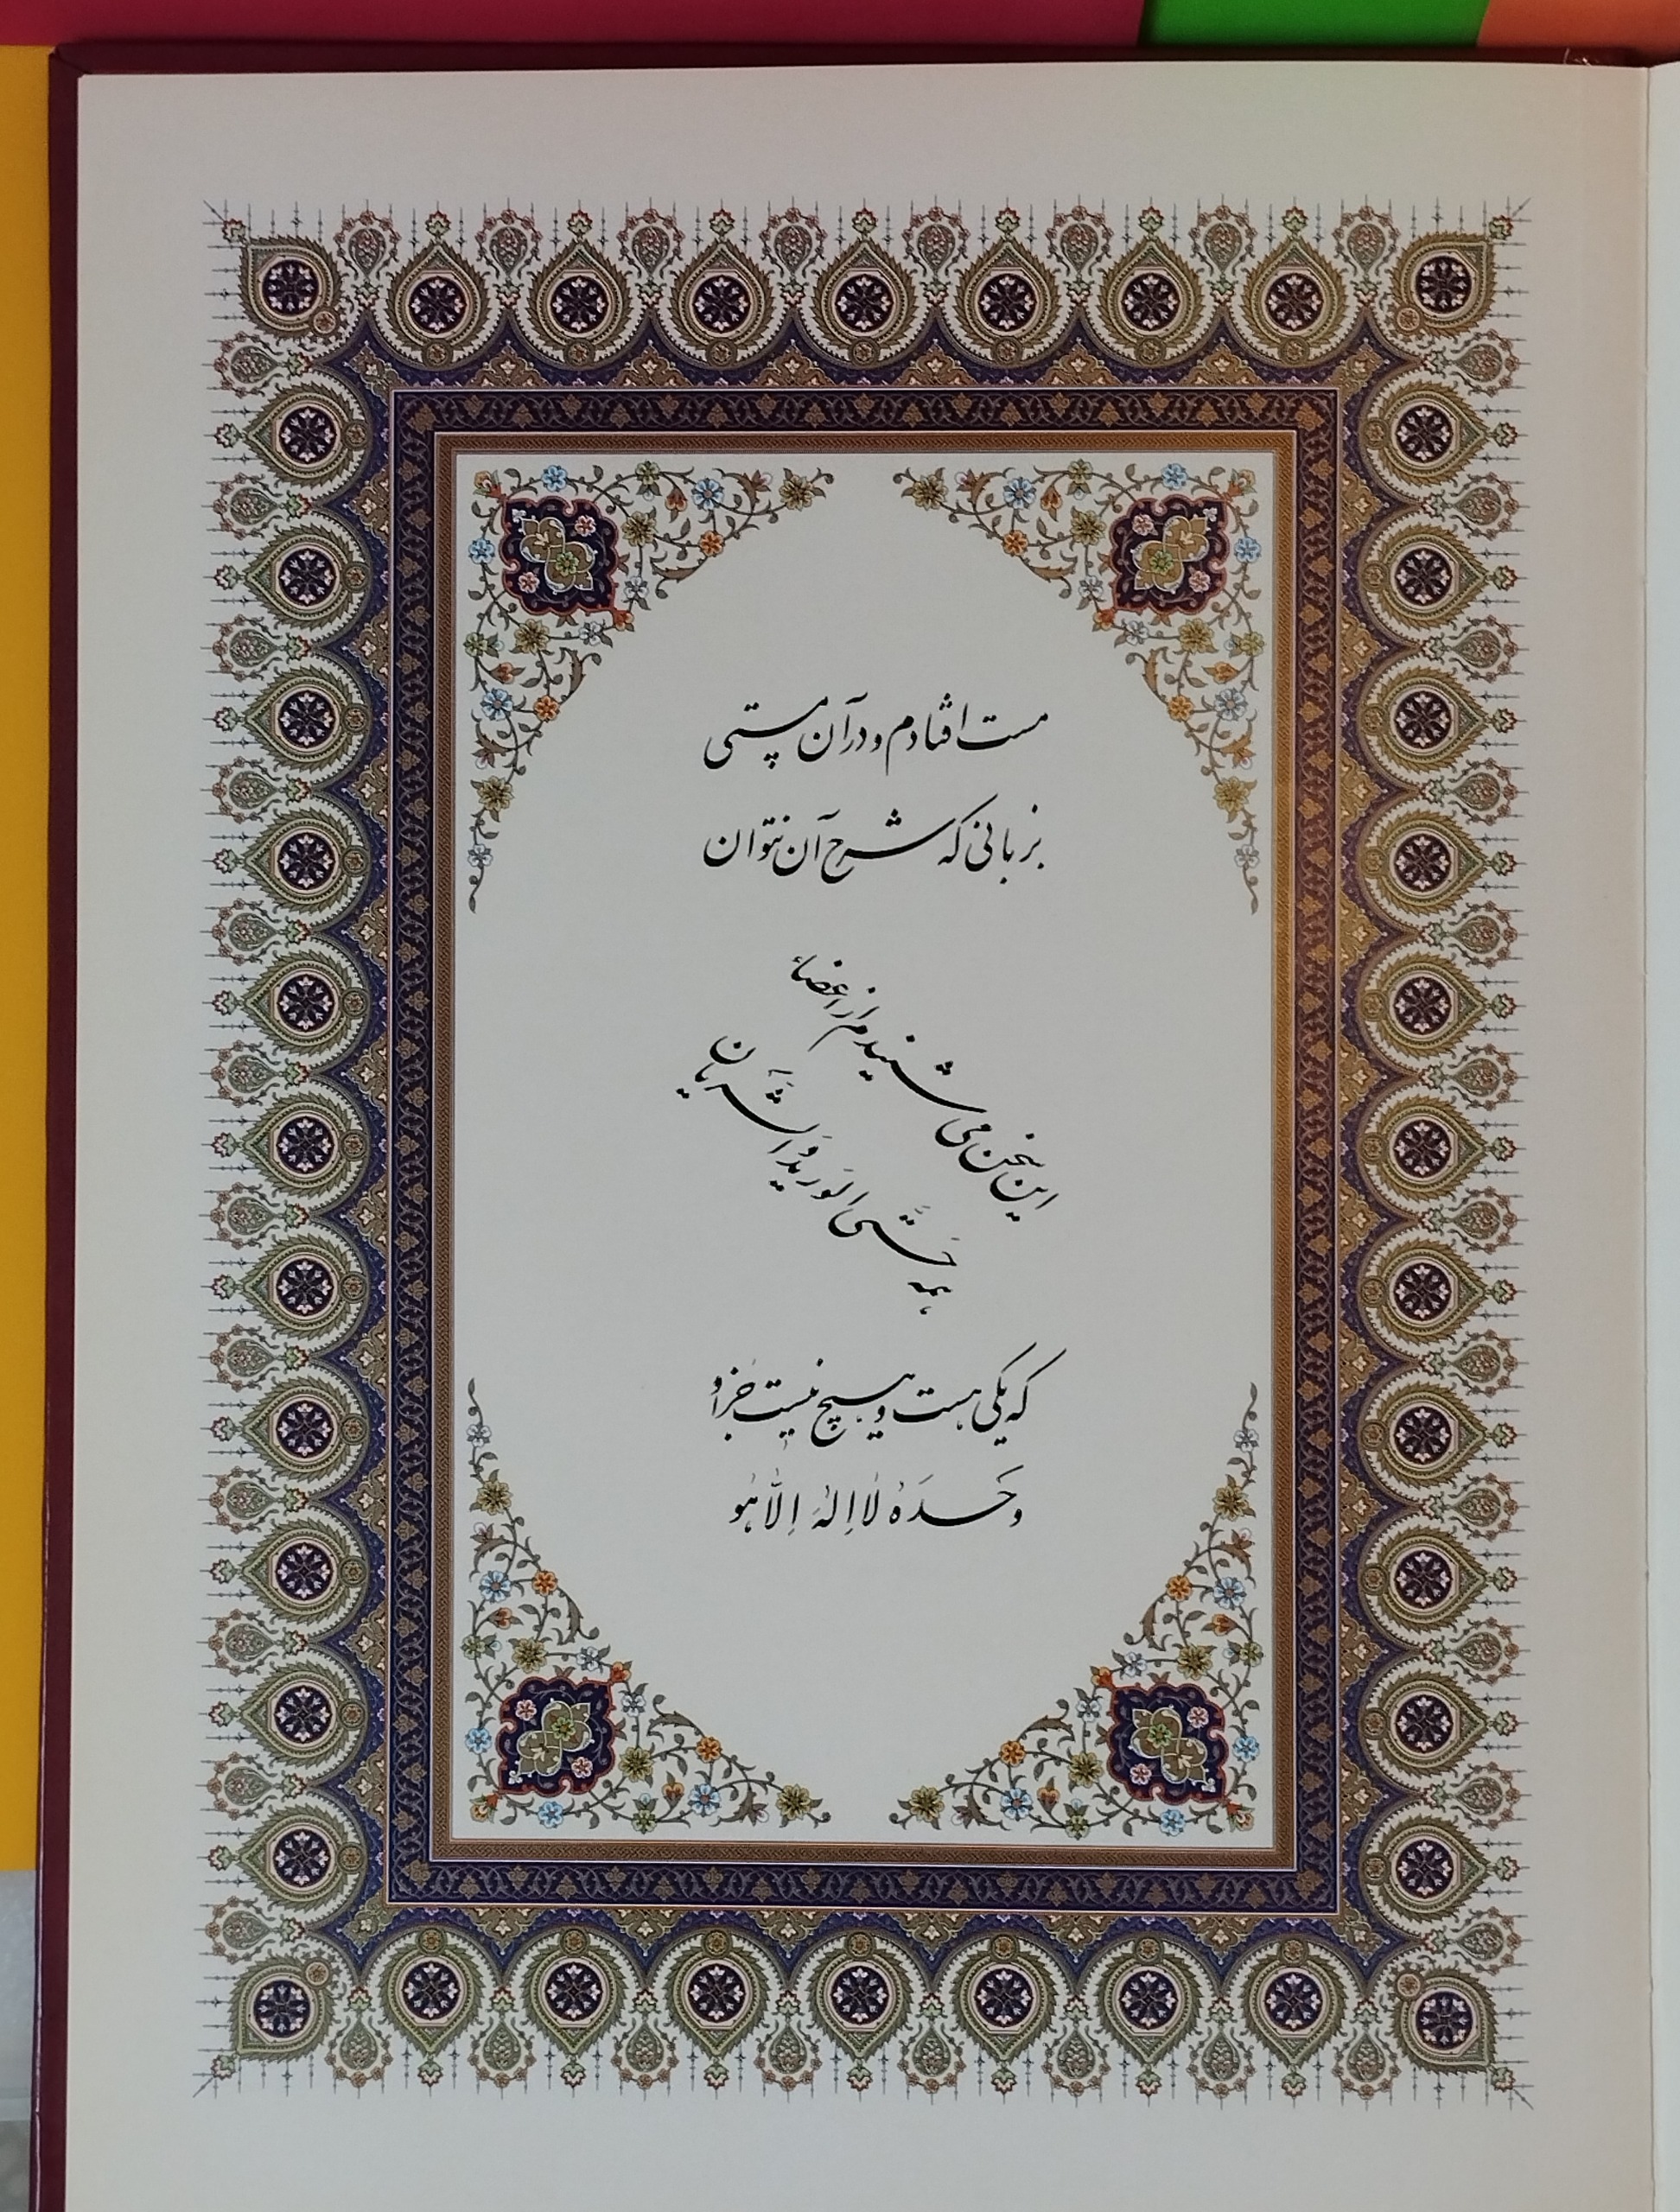 مست افتادم و در آن مستی
بزبانی که شرح آن نتوان
این سخن می شنیدم از اعضاء
همه حَتَّی الوَریدُ وَ الشَّریَان
که یکی هست و هیچ نیست جز او
وَحدَهُ لا اِلهَ اِلّا هُو